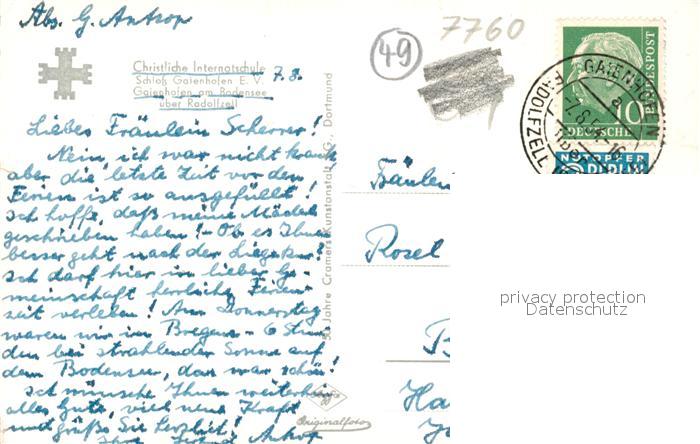 Abs. G. Antrop
Christliche Internatschule
Schloß Gaienhofen E. V.
Gaienhofen am Bodensee
über Radolfzell
7.8.
Liebes Fräulein Scherrer!
Nein ich war nicht krank
aber die letzte Zeit vor den
Ferien ist so ausgefüllt!
Ich hoffe, daß meine Mädel
geschrieben haben! - Ob es Ihnen
besser geht nach der Liegekur?
Ich darf hier in lieber Ge-
meinschaft herrliche Ferien-
zeit verleben! Am Donnerstag
waren wir in Bregenz - 6 Stun-
den bei strahlender Sonne auf
dem Bodensee, das war schön!
Ich wünsche Ihnen weiterhin
alles Gute, viel neue Kraft
und grüße Sie herzlichst!
Ihre
50 Jahre Cramers Kunstanstalt KG., Dortmund
Originalfoto
49
7760
DEUTSCHE BUNDESPOST
10
GAIENHOFEN
RADOLFZELL
NOTOPFER
Fräulein
Rosel
privacy protection
Datenschutz